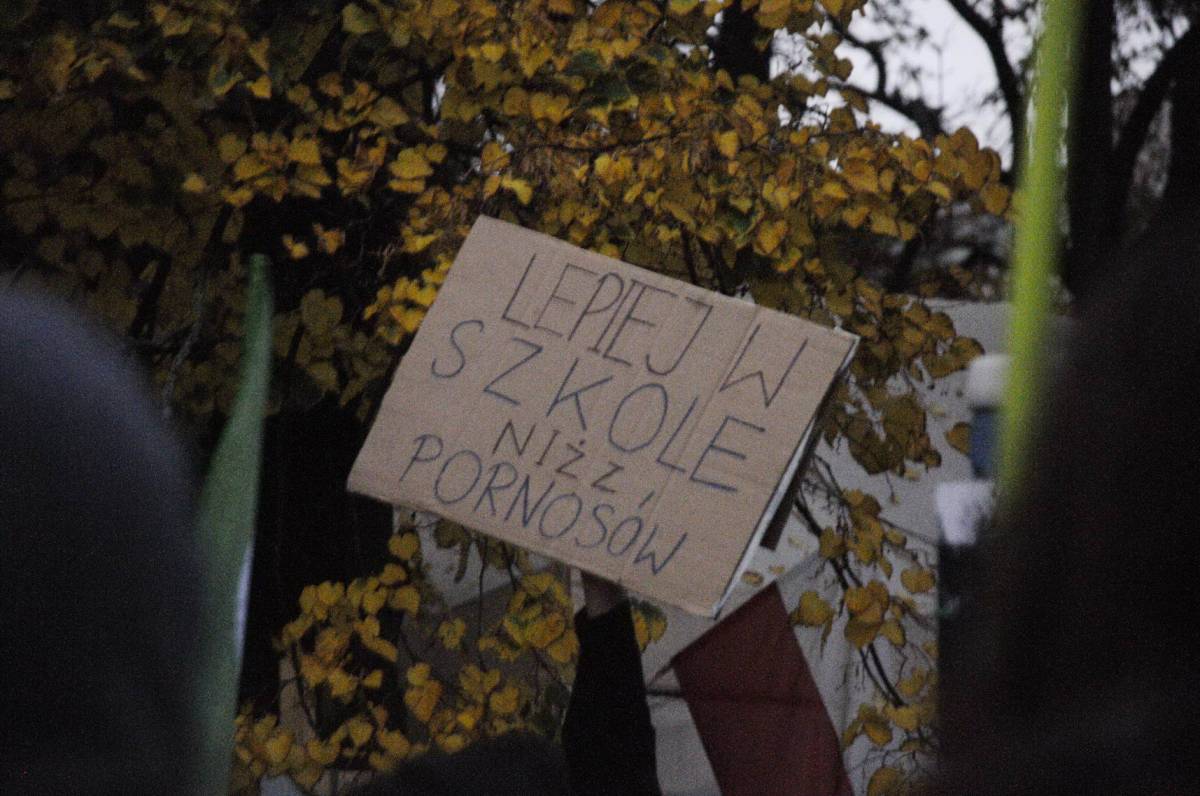 LEPIEJ W
SZKOLE
NIŻ Z,
PORNOSÓW